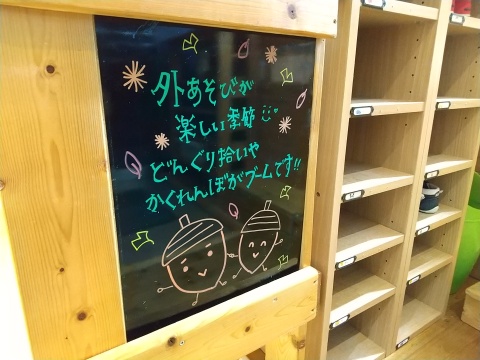 外あそびが
楽しい季節
どんぐり拾いや
かくれんぼがブームです!!